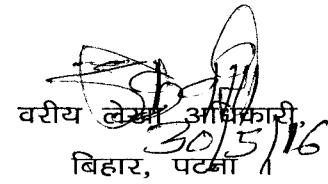 वरीय लेखा अधिकारी,
30/5/16
बिहार, पटना ।